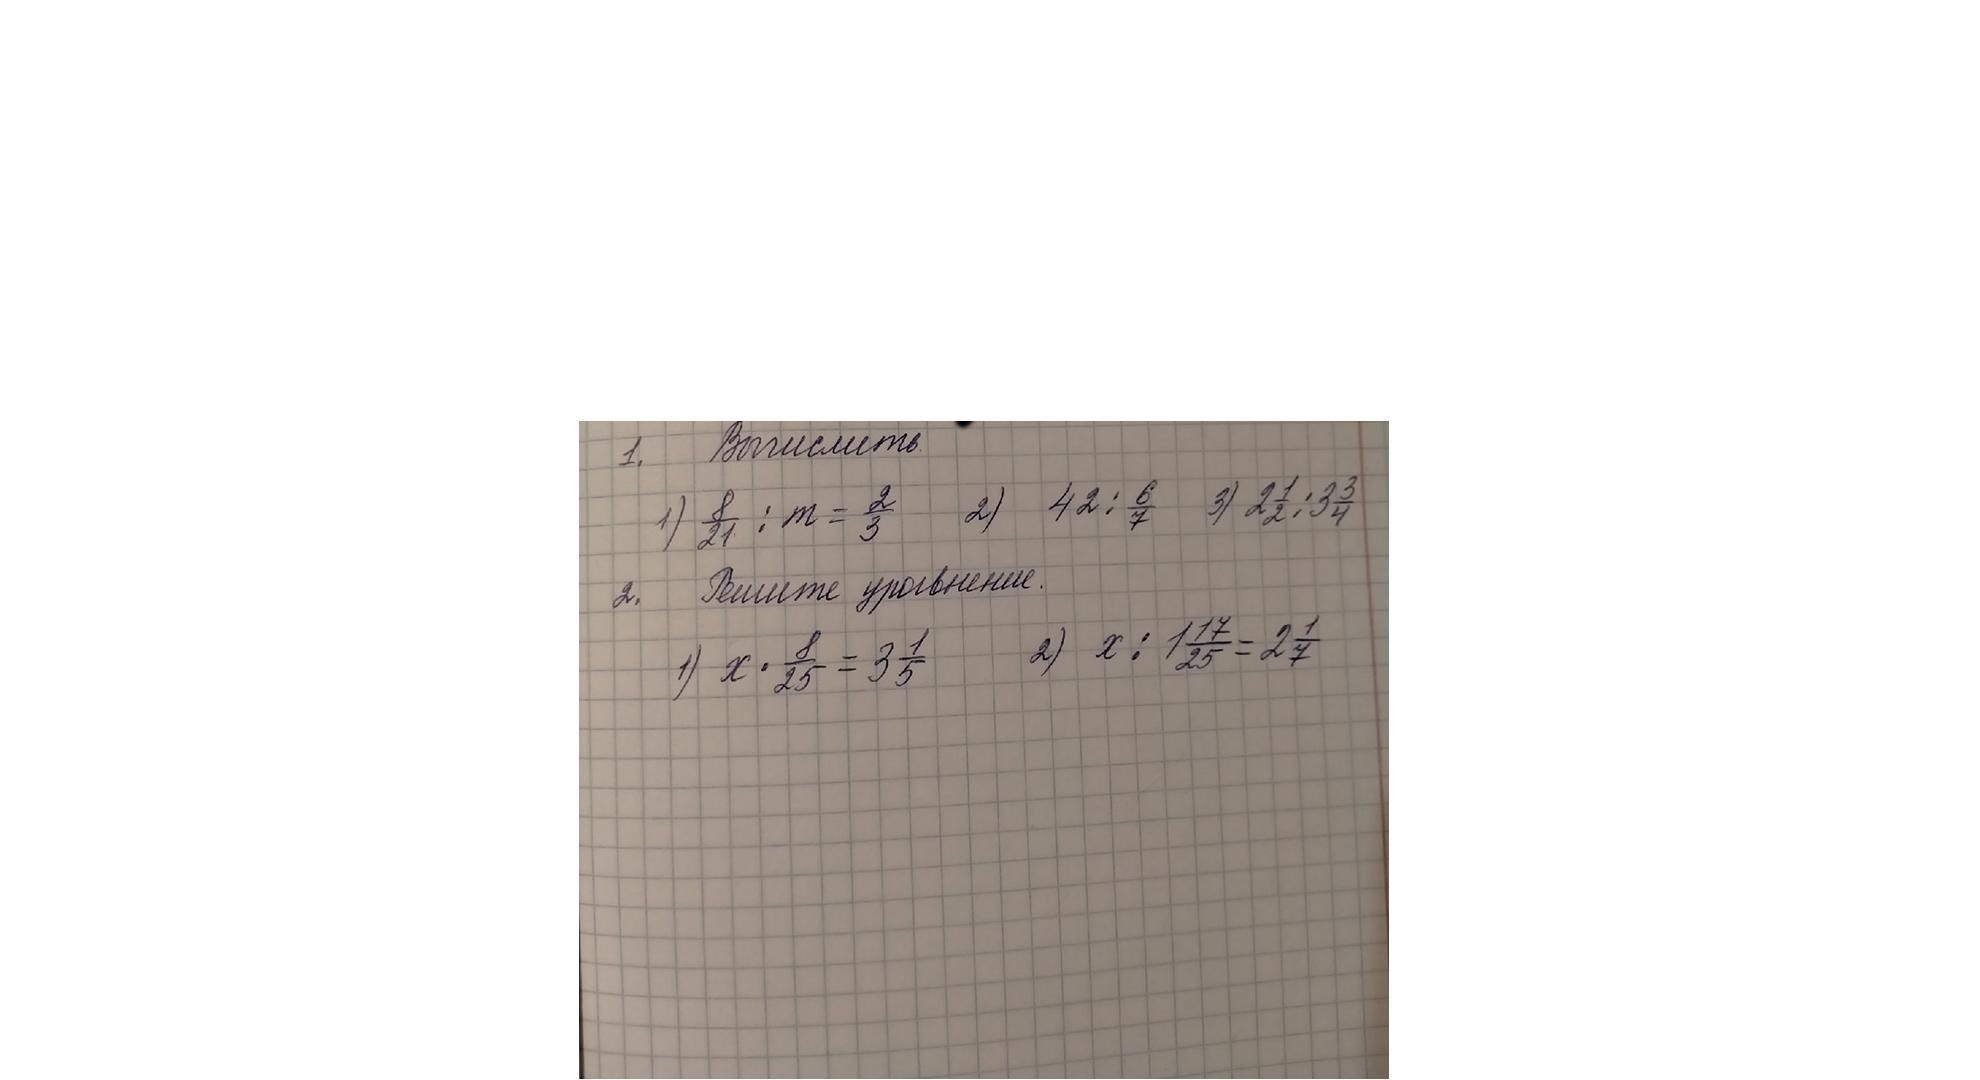 1. Вычислить
1) 8/21 : m = 2/3 2) 42 : 6/7 3) 2 1/2 : 3 3/4
2. Решите уравнение.
1) x · 8/25 = 3 1/5 2) x : 1 17/25 = 2 1/7